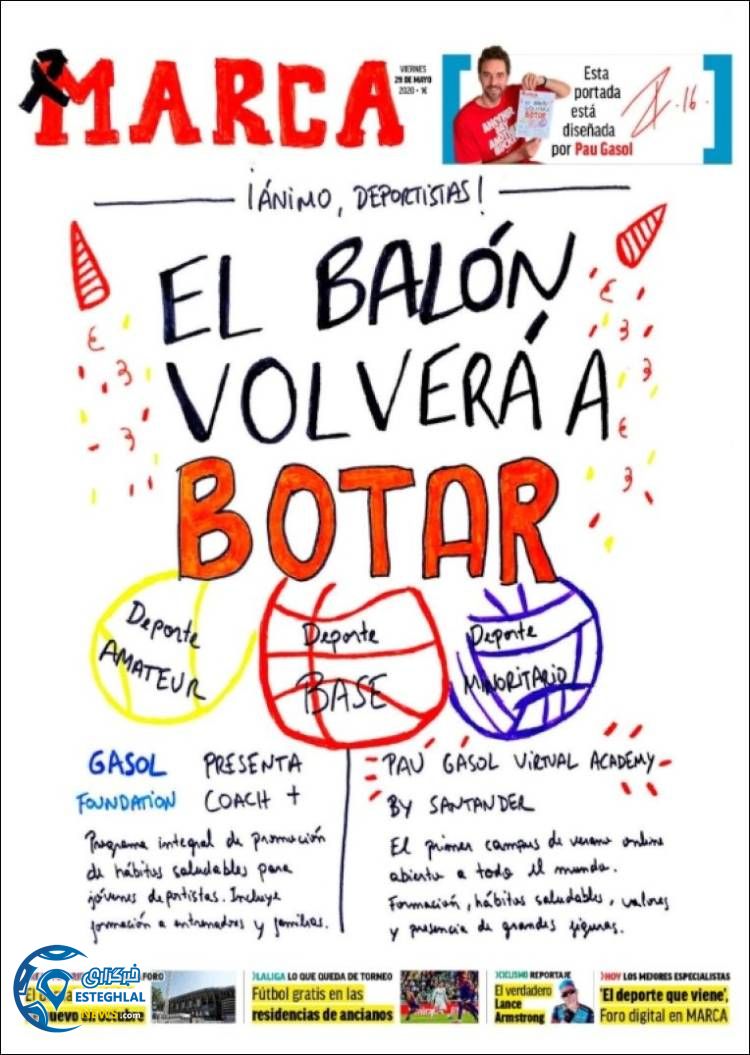 MARCA
VIERNES
29 DE MAYO
2020 · 1€
Esta
portada
está
diseñada
por Pau Gasol
.16.
¡ÁNIMO, DEPORTISTAS!
EL BALÓN
VOLVERÁ A
BOTAR
Deporte
AMATEUR
Deporte
BASE
Deporte
MINORITARIO
GASOL PRESENTA
FOUNDATION COACH +
Programa integral de promoción
de hábitos saludables para
jóvenes deportistas. Incluye
formación a entrenadores y familias.
PAU GASOL VIRTUAL ACADEMY
BY SANTANDER
El primer campus de verano online
abierto a todo el mundo.
Formación, hábitos saludables, valores
y presencia de grandes figuras.
FORO
خبرگزاری
ESTEGHLAL
NEWS.com
LALIGA LO QUE QUEDA DE TORNEO
Fútbol gratis en las
residencias de ancianos
CICLISMO REPORTAJE
El verdadero
Lance
Armstrong
HOY LOS MEJORES ESPECIALISTAS
'El deporte que viene',
Foro digital en MARCA